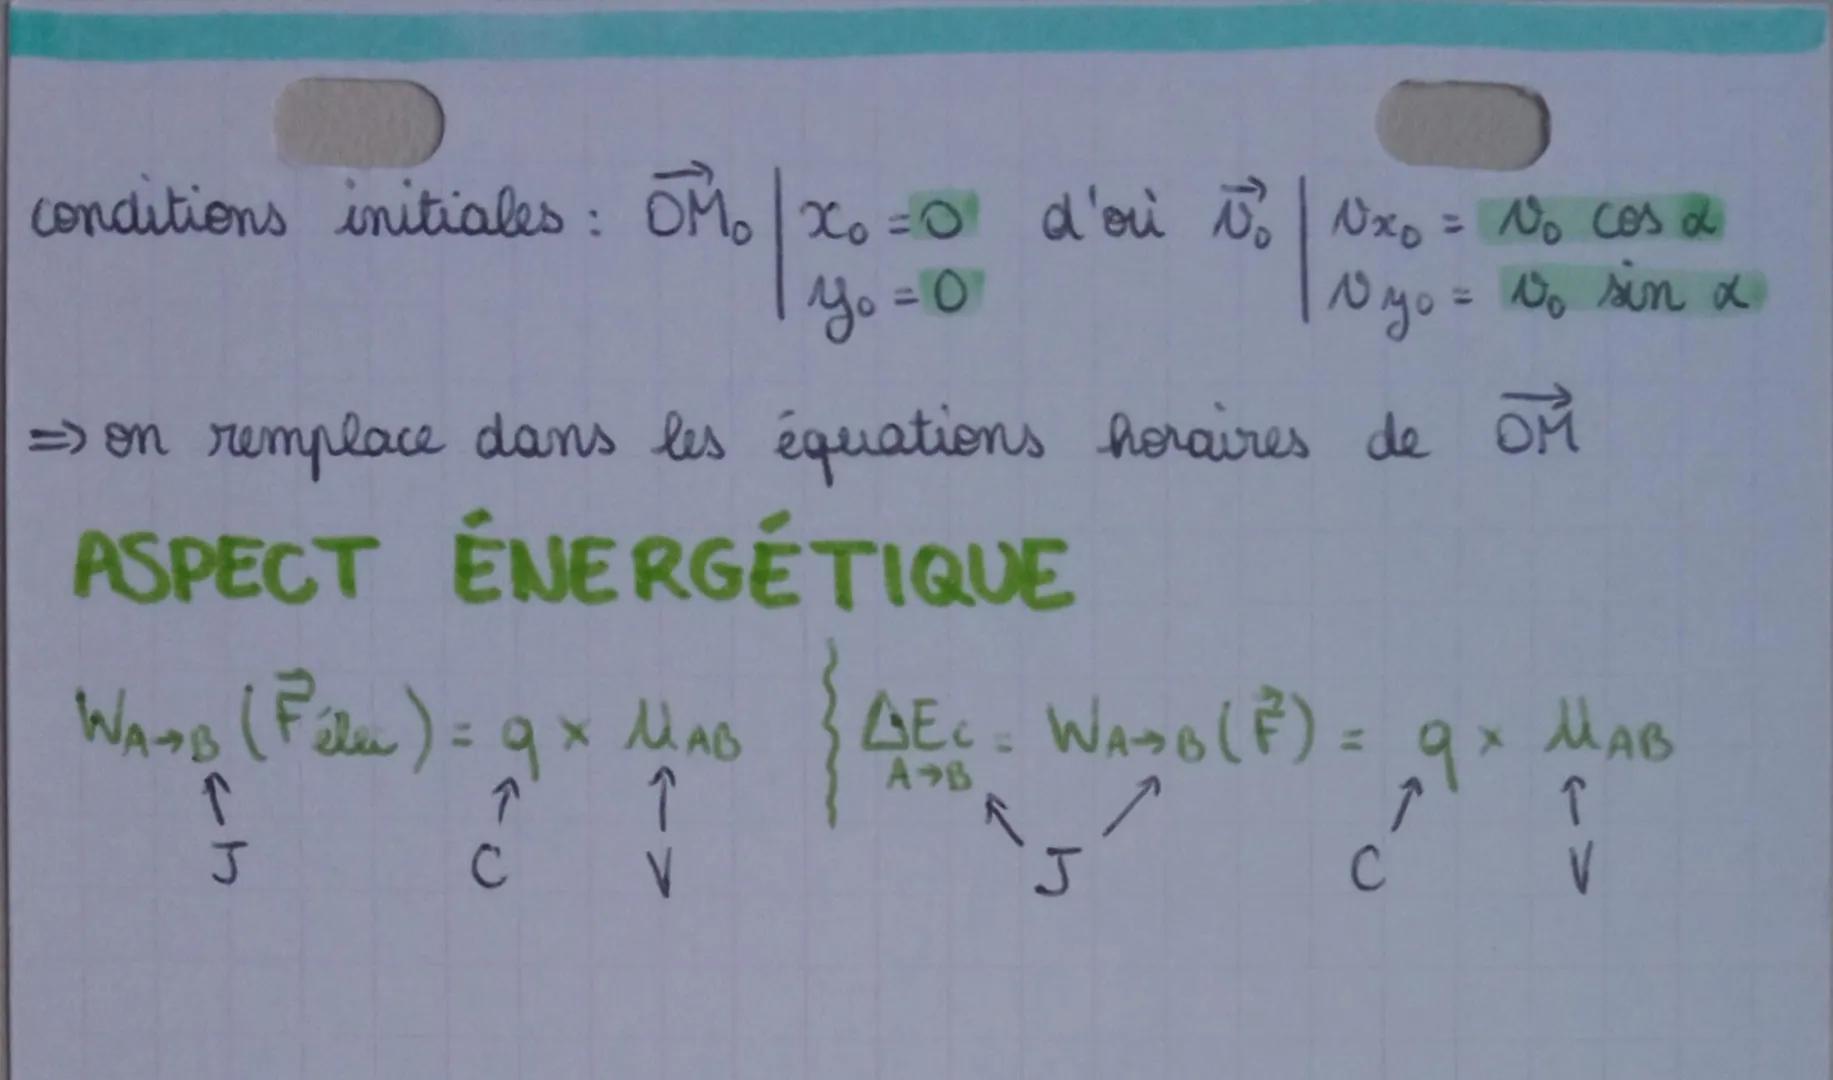 conditions initiales : OM₀ | x₀ = 0 d'où v₀ | vx₀ = v₀ cos α
y₀ = 0 vy₀ = v₀ sin α
=> on remplace dans les équations horaires de OM
ASPECT ÉNERGÉTIQUE
W A→B (F élec) = q × U AB ΔEc = W A→B (F) = q × U AB
A→B
J C V J C V